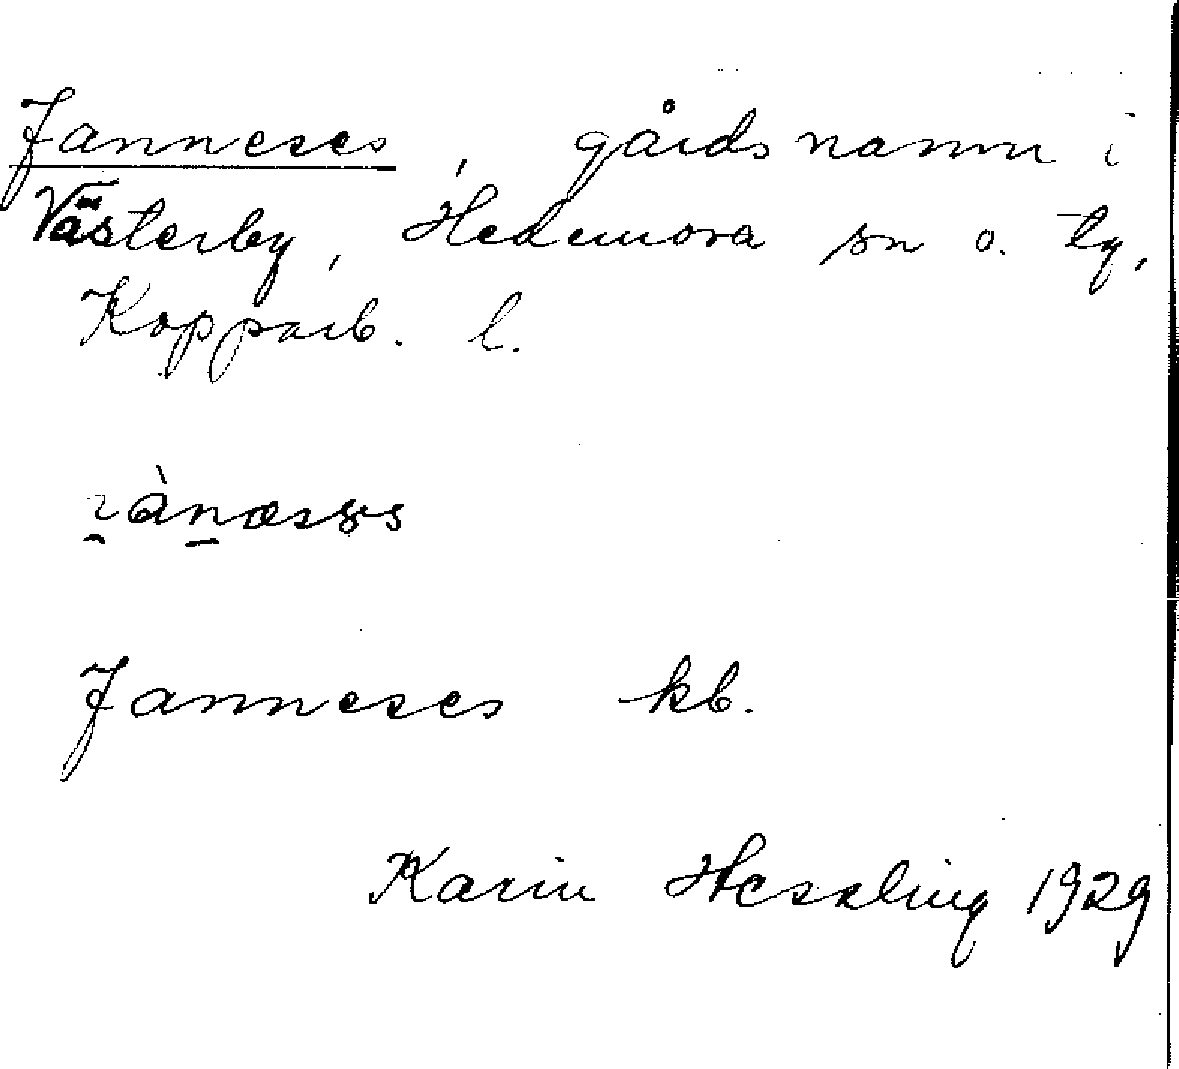 Janneses, gårdsnamn i
Västerby, Hedemora sn o. tg,
Kopparb. l.
Janneses kb.
Karin Hessling 1929